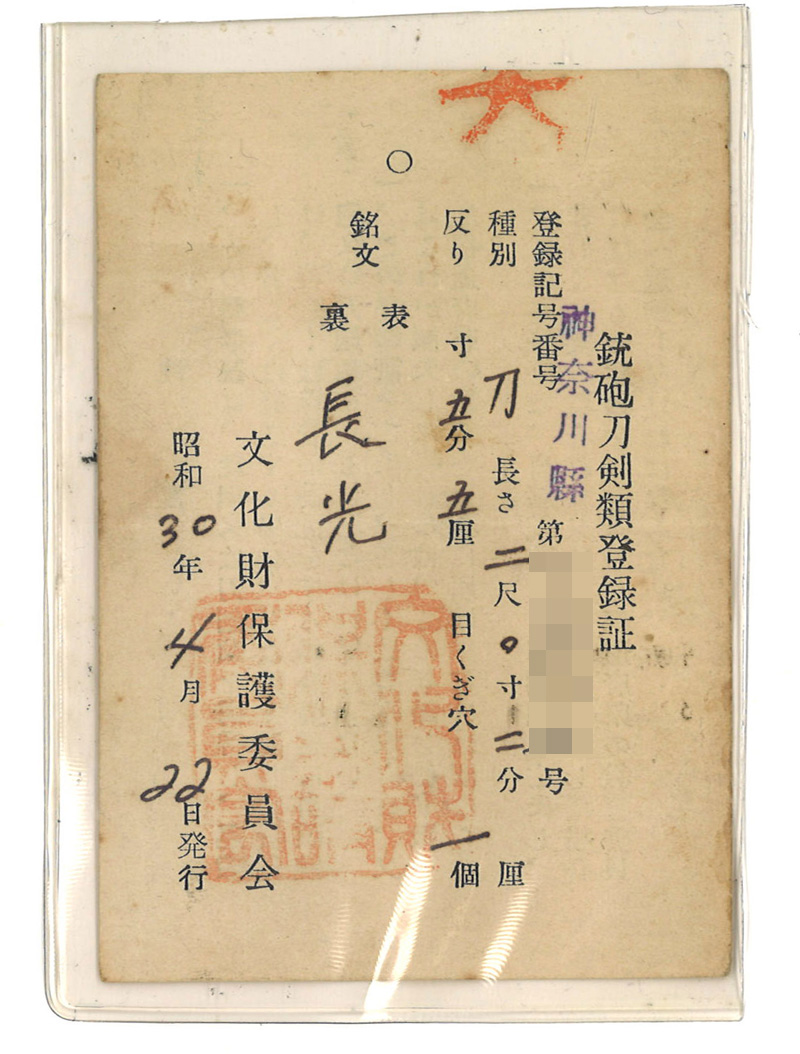 銃砲刀剣類登録証
神奈川縣
登録記号番号 第 号
種別 刀 長さ 二尺〇寸二分 厘
反り 寸五分五厘 目くぎ穴 一個
銘文 表 長光
裏
文化財保護委員会
昭和30年4月22日発行